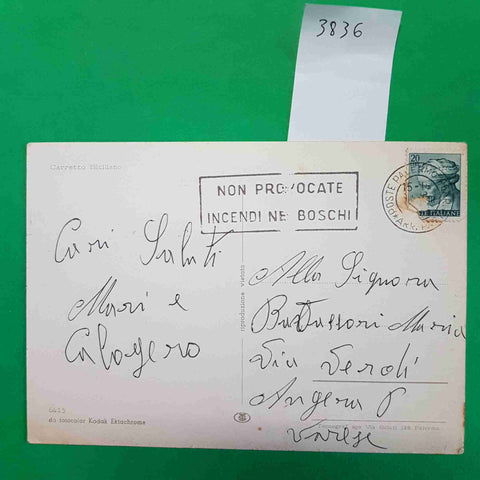 3836
Carretto Siciliano
20
POSTE ITALIANE
POSTE PALERMO
NON PROVOCATE
INCENDI NEI BOSCHI
Cari Saluti
Mari e
Calogero
Alla Signora
Maria
Via Verdi
Angera
Varese
riproduzione vietata
da fotocolor Kodak Ektachrome